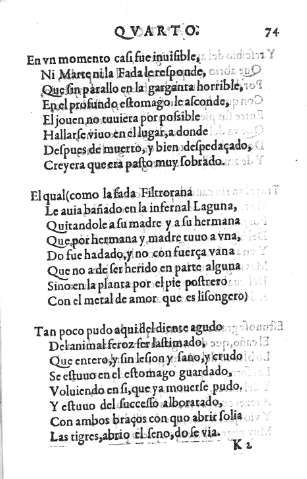 QVARTO. 74
En vn momento casi fue inuisible,
Ni Marte ni la Fada le responde,
Que sin parallo en la garganta horrible,
En el profundo estomago le asconde,
El jouen no tuuiera por possible
Hallarse viuo en el lugar, a donde
Despues de muerto, y bien despedaçado,
Creyera que era pasto muy sobrado.
El qual (como la fada Filtrorana
Le auia bañado en la infernal Laguna,
Quitandole a su madre y a su hermana
Que por hermana y madre tuuo a vna,
Do fue hadado, y no con fuerça vana
Que no a de ser herido en parte alguna
Sino en la planta por el pie postrero
Con el metal de amor que es lisongero)
Tan poco pudo aqui del diente agudo
Del animal feroz ser lastimado,
Que entero, y sin lesion y sano, y crudo
Se estuuo en el estomago guardado,
Voluiendo en si, que ya mouerse pudo,
Y estuuo del successo alboratado,
Con ambos braços con quo abrir solia
Las tigres, abrio el seno, do se via.
K 2